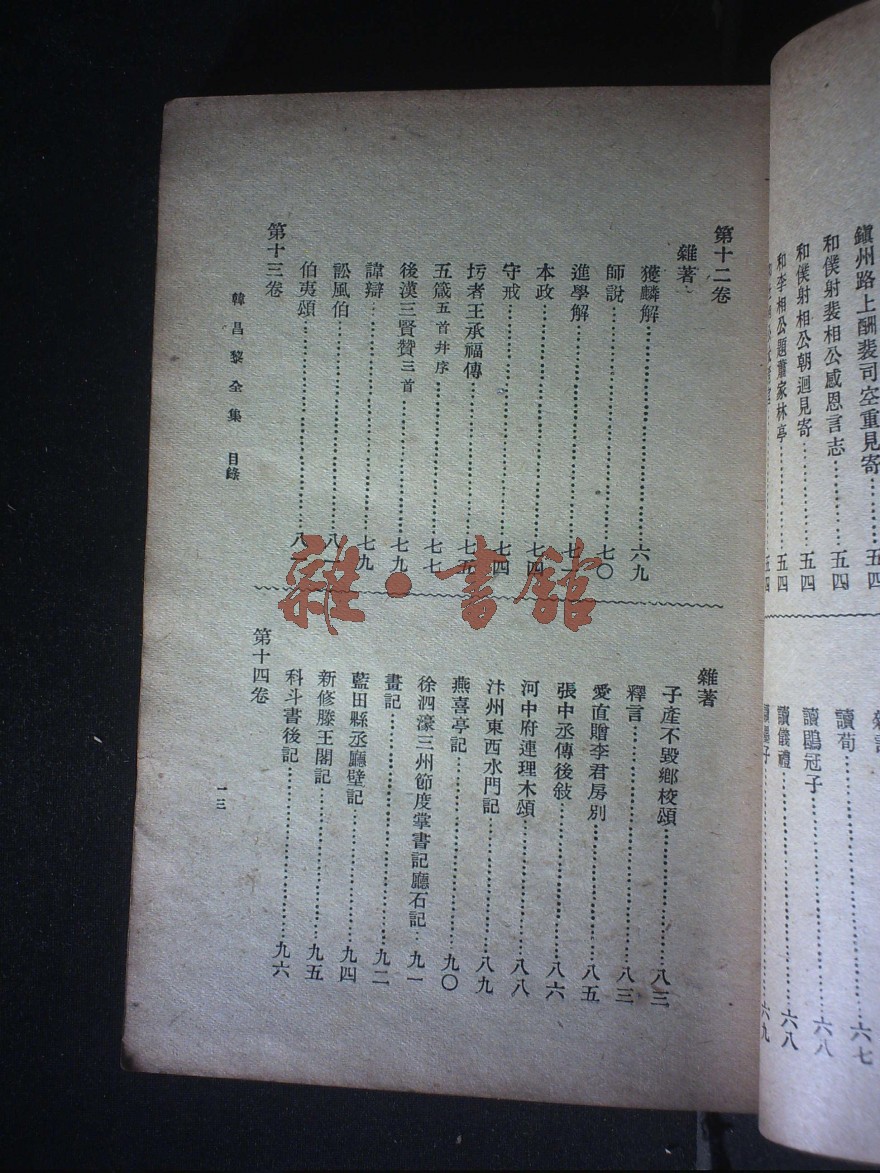 鎭州路上酬裴司空重見寄……五四
和僕射裴相公感恩言志……五四
和僕射相公朝迴見寄……五四
和李相公題蕭家林亭……五四
讀荀……六七
讀鶡冠子……六八
讀儀禮……六八
第十二卷
雜著
獲麟解……六九
師說……七〇
進學解……七一
守戒……七四
本政……七四
圬者王承福傳……七五
五箴五首幷序……七七
後漢三賢贊三首……七九
諱辯……七九
訟風伯……八一
伯夷頌……八一
第十三卷
雜著
子產不毀鄉校頌……八三
釋言……八三
愛直贈李君房別……八五
張中丞傳後敍……八六
河中府連理木頌……八八
汴州東西水門記……八九
燕喜亭記……九〇
徐泗濠三州節度掌書記廳石記……九一
畫記……九二
藍田縣丞廳壁記……九四
新修滕王閣記……九五
科斗書後記……九六
第十四卷
韓昌黎全集 目錄
一三
雜·書館